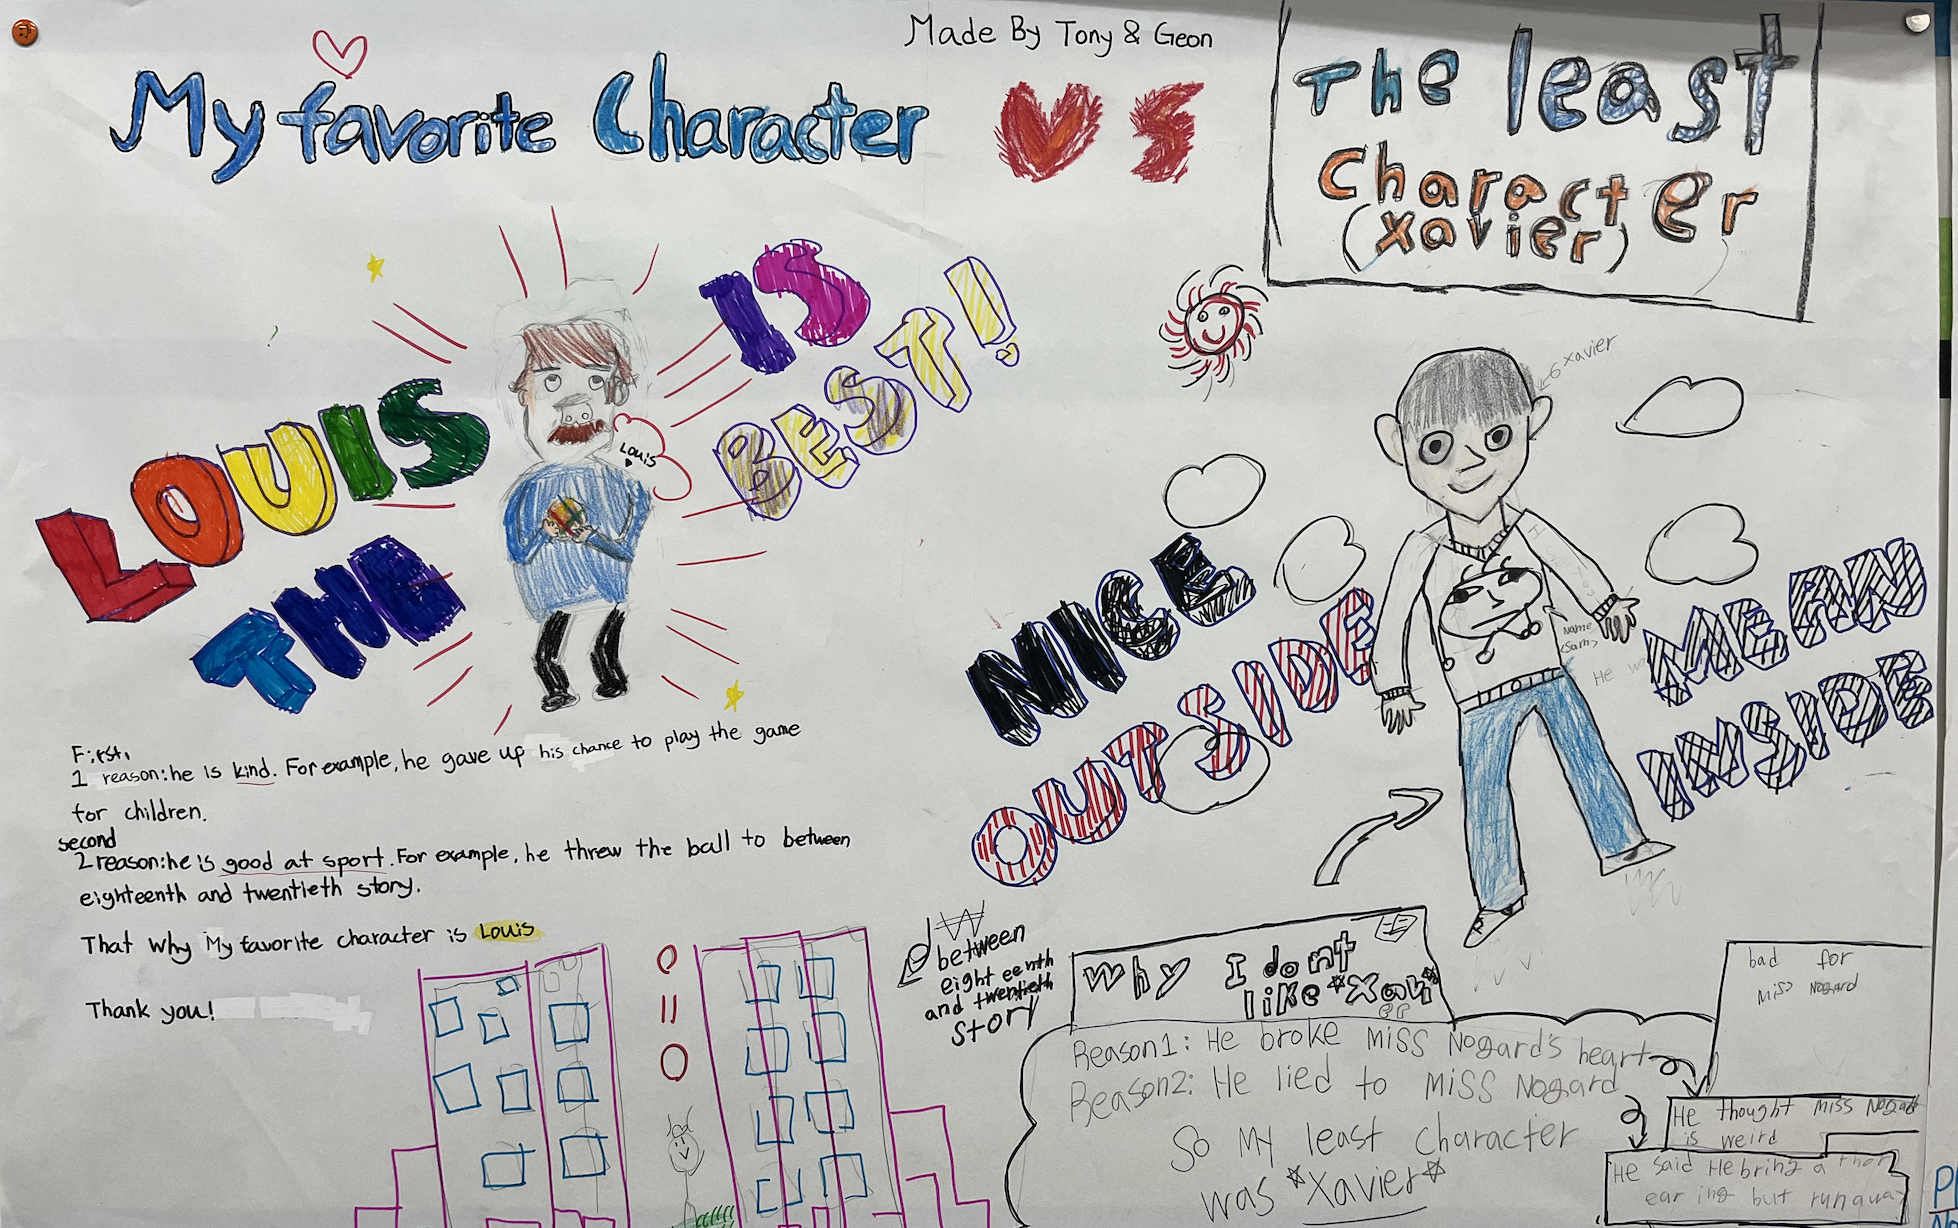 Made By Tony & Geon
My favorite Character
VS
The least
Character
(Xavier)
LOUIS IS
THE BEST!
Louis
Xavier
NICE
OUTSIDE
MEAN
INSIDE
Name
<Sam>
He
First,
1 reason: he is kind. For example, he gave up his chance to play the game
for children.
second
2 reason: he is good at sport. For example, he threw the ball to between
eighteenth and twentieth story.
That why My favorite character is Louis
Thank you!
between
eighteenth
and twentieth
story
Why I dont
like *Xavi*
er
Reason1: He broke Miss Nogard's heart
Reason2: He lied to Miss Nogard
So My least character
was *Xavier*
bad for
Miss Nogard
He thought Miss Nogard
is weird
He said He bring a
ear ing but runaway